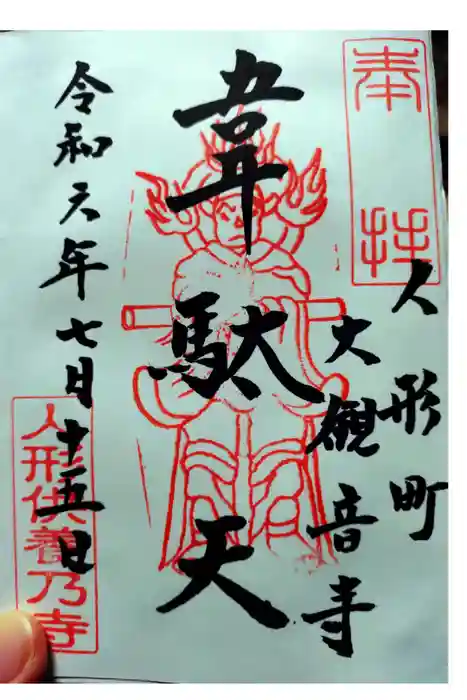 奉拝
人形町
大観音寺
韋駄天
令和元年七日十五日
人形供養乃寺